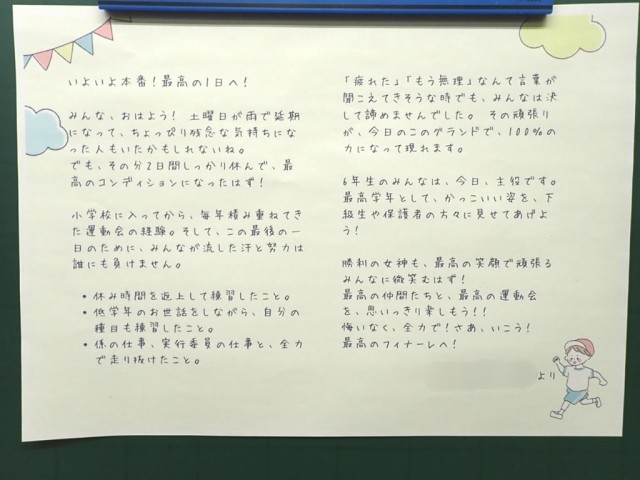 いよいよ本番！最高の1日へ！
みんな、おはよう！ 土曜日が雨で延期
になって、ちょっぴり残念な気持ちにな
った人もいたかもしれないね。
でも、その分2日間しっかり休んで、最
高のコンディションになったはず！
小学校に入ってから、毎年積み重ねてき
た運動会の経験。そして、この最後の一
日のために、みんなが流した汗と努力は
誰にも負けません。
• 休み時間を返上して練習したこと。
• 低学年のお世話をしながら、自分の
種目も練習したこと。
• 係の仕事、実行委員の仕事と、全力
で走り抜けたこと。
「疲れた」「もう無理」なんて言葉が
聞こえてきそうな時でも、みんなは決
して諦めませんでした。その頑張り
が、今日のこのグランドで、100％の
力になって現れます。
6年生のみんなは、今日、主役です。
最高学年として、かっこいい姿を、下
級生や保護者の方々に見せてあげよ
う！
勝利の女神も、最高の笑顔で頑張る
みんなに微笑むはず！
最高の仲間たちと、最高の運動会
を、思いっきり楽しもう！！
悔いなく、全力で！さあ、いこう！
最高のフィナーレへ！
より